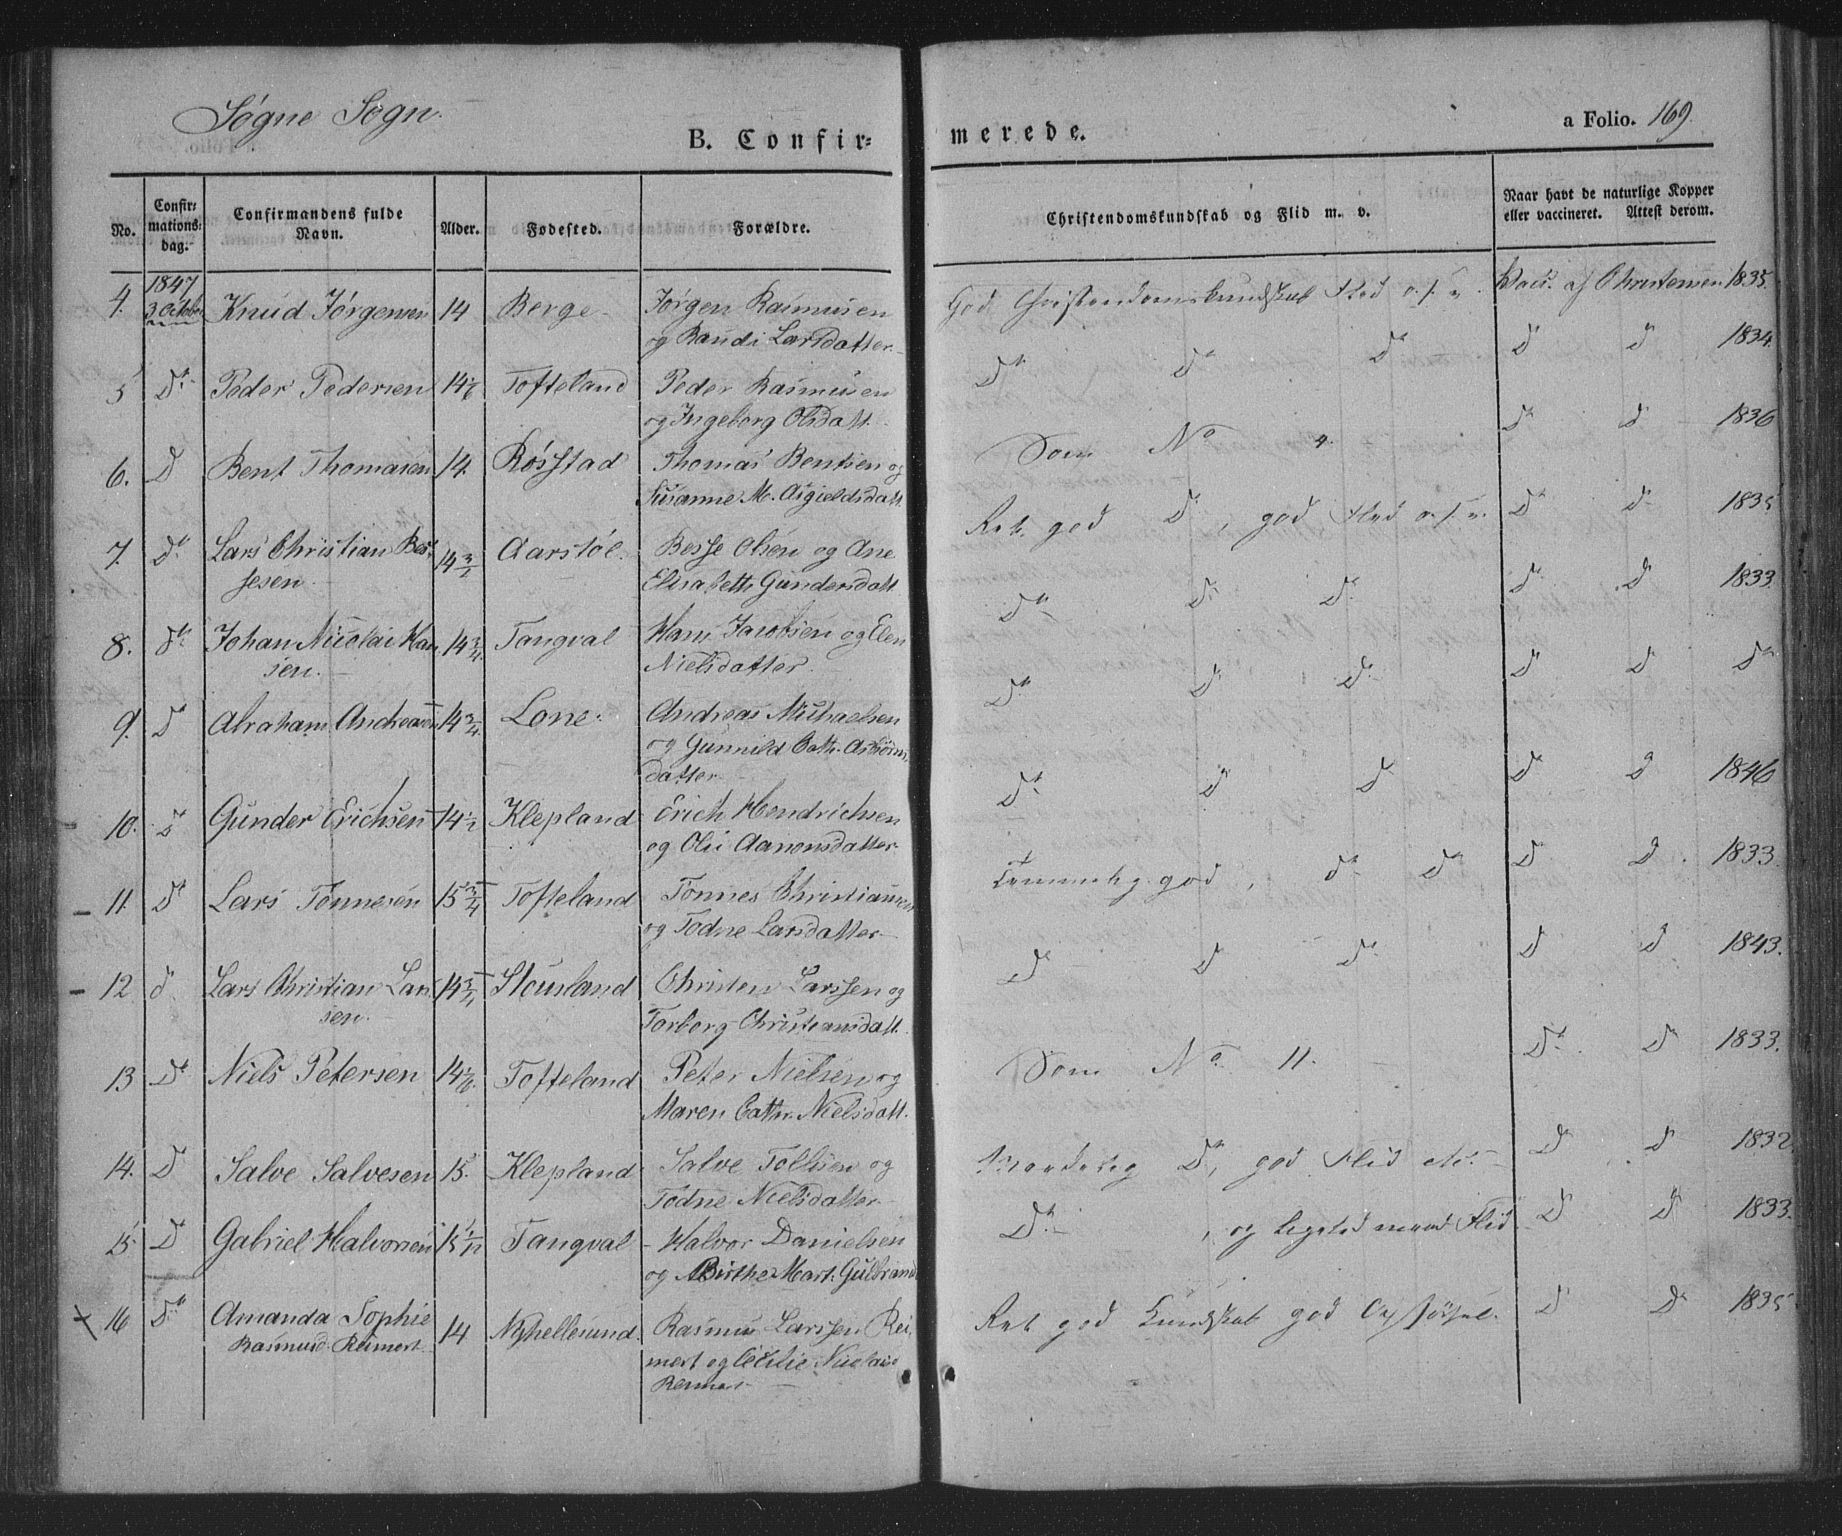 Søgne Sogn.
B. Confir-
merede.
a Folio. 169.
No.
Confir-
mations-
dag.
Confirmandens fulde
Navn.
Alder.
Fødested.
Forældre.
Christendomskundskab og Flid m. v.
Naar havt de naturlige Kopper
eller vaccineret. Attest derom.
1847
4. 3 Octobr Knud Jørgensen 14 Berge Jørgen Rasmusen
og Randi Larsdatter
God Christendomskundskab Flid o.s.v. Vacc. af Christensen 1835.
5 Do Peder Pedersen 14 Tofteland Peder Rasmusen
og Ingeborg Olsdatt.
Do Do Do Do Do 1834.
6. Do Bent Thomasen 14. Røsstad Thomas Bentsen og
Susanne M. Asgieldsdatt.
Som No 4. Do Do 1836
7. Do Lars Christian Bes-
sesen
Aarstøl Besse Olsen og Ane
Elisabeth Gundersdatt.
Ret god Do, god Flid o.s.v. Do Do 1835
8. Do Johan Nicolai Han
sen.
14 3/4 Tangval Hans Jacobsen og Elen
Nielsdatter
Do Do Do Do Do 1833.
9. Do Abraham Andreasen 14 3/4 Lone Andreas Michaelsen
og Gunnild Cath. Asbiørns
datter
Do Do Do Do Do Do
10. Do Gunder Erichsen 14 1/2 Klepland Erich Hendrichsen
og Olii Aanonsdatter
Do Do Do Do Do 1846
11. Do Lars Tønnesen 15 3/4 Tofteland Tønnes Christiansen
og Todne Larsdatter
Temmelig god, Do Do Do Do 1833.
12 Do Lars Christian Lar
sen.
14 3/4 Stousland Christen Larssen og
Torborg Christiansdatt.
Do Do Do Do Do 1843.
13 Do Niels Petersen Tofteland Peter Nielsen og
Maren Cathr. Nielsdatt.
Som No 11. Do Do 1833.
14. Do Salve Salvesen 15. Klepland Salve Tollisen og
Todne Nielsdatter
Maadelig Do, god Flid etc. Do Do 1832
15 Do Gabriel Halvorsen 15 Tangval Halvor Danielsen
og Birthe Mart. Gulbrand
Do, og ligeled maad Flid Do Do 1833.
16 Do Amanda Sophie
Rasmusd. Reimert.
14 Ny hellesund. Rasmus Larssen Rei-
mert og Cecilie Nicolaisd
Reimert
Ret god Kundskab god Opførsel. Do Do 1835